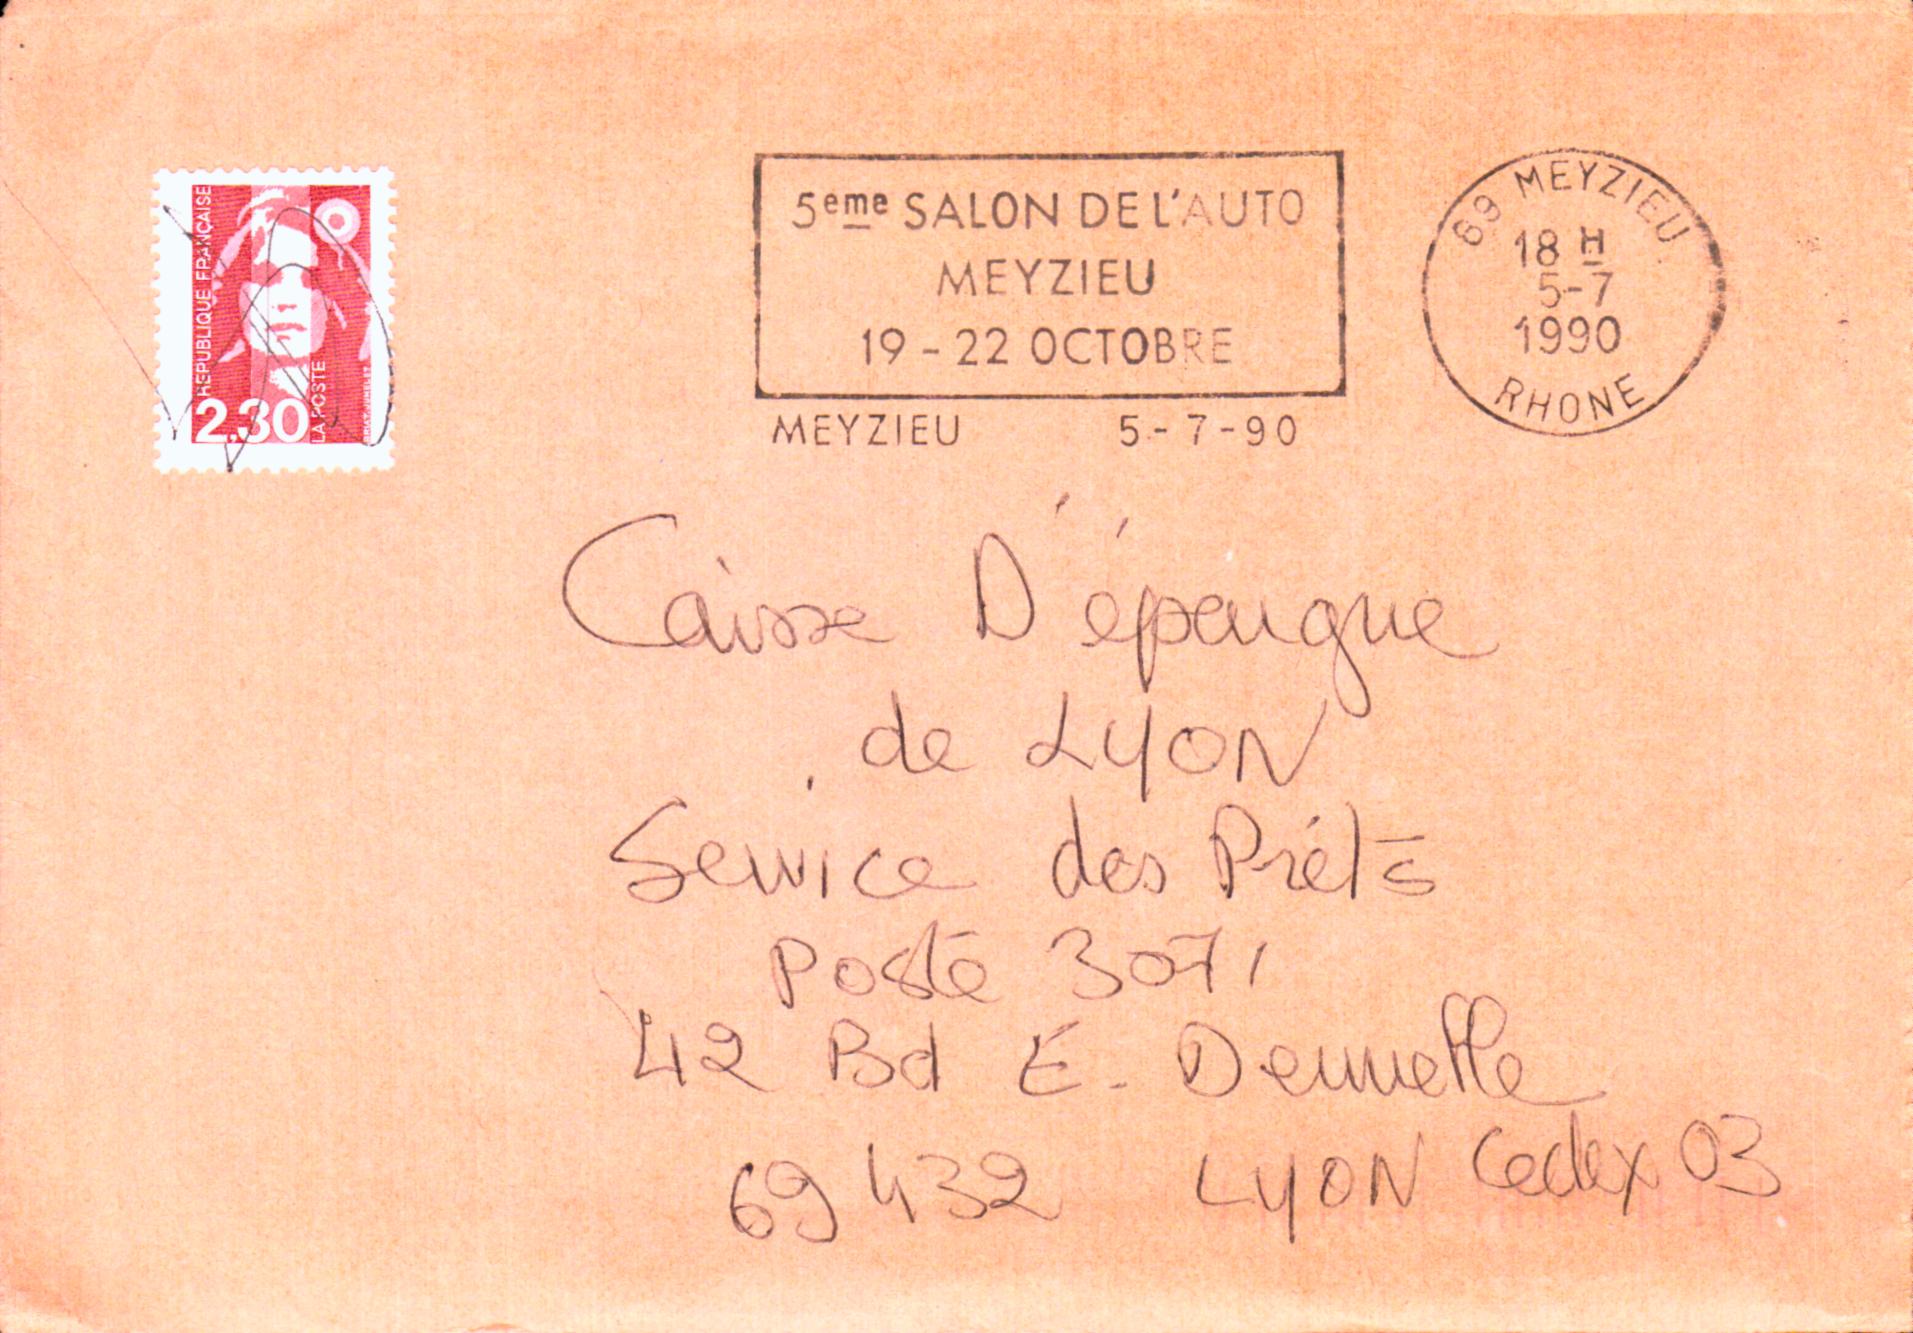 REPUBLIQUE FRANÇAISE
2,30
LA POSTE
5eme SALON DE L'AUTO
MEYZIEU
19 - 22 OCTOBRE
MEYZIEU 5 - 7 - 90
69 MEYZIEU
18 H
5-7
1990
RHONE
Caisse D'épargne
de LYON
Service des Prêts
Poste 3071
42 Bd E. Deruelle
69 432 LYON Cedex 03